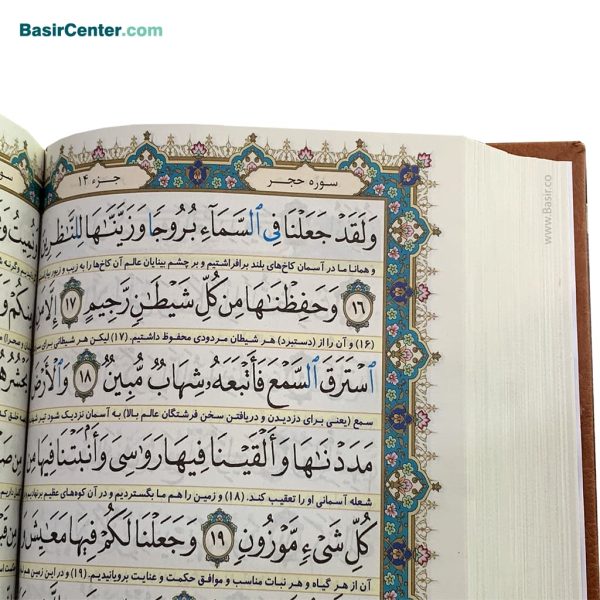 BasirCenter.com
سوره حجر
جزء ۱۴
وَلَقَدْ جَعَلْنَا فِي ٱلسَّمَآءِ بُرُوجًا وَزَيَّنَّـٰهَا لِلنَّـٰظِرِينَ
و همانا ما در آسمان کاخ‌های بلند برافراشتیم و بر چشم بینایان عالم آن کاخ‌ها را به زیب و زیور
۱۶ وَحَفِظْنَـٰهَا مِن كُلِّ شَيْطَـٰنٍ رَّجِيمٍ ۱۷ إِلَّا مَنِ
(۱۶) و آن را از (دستبرد) هر شیطان مردودی محفوظ داشتیم. (۱۷) لیکن هر شیطانی برای
ٱسْتَرَقَ ٱلسَّمْعَ فَأَتْبَعَهُۥ شِهَابٌ مُّبِينٌ ۱۸ وَٱلْأَرْضَ
سمع (یعنی برای دزدیدن و دریافتن سخن فرشتگان عالم بالا) به آسمان نزدیک شود تیر
مَدَدْنَـٰهَا وَأَلْقَيْنَا فِيهَا رَوَٰسِىَ وَأَنۢبَتْنَا فِيهَا مِن
شعله آسمانی او را تعقیب کند. (۱۸) و زمین را هم ما بگستردیم و در آن کوه‌های عظیم برنهادیم
كُلِّ شَىْءٍ مَّوْزُونٍ ۱۹ وَجَعَلْنَا لَكُمْ فِيهَا مَعَـٰيِشَ
آن از هر گیاه و هر نبات مناسب و موافق حکمت و عنایت برویانیدیم. (۱۹) و در این زمین
www.Basir.co